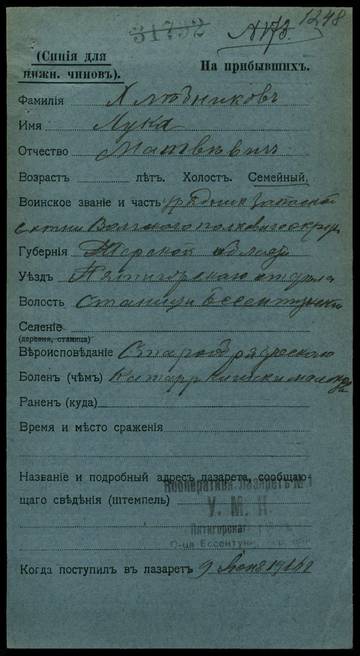 31732
1248
(Синія для
нижн. чиновъ).
На прибывшихъ.
Фамилія Хлѣбниковъ
Имя Лука
Отчество Матвѣевич
Возрастъ лѣтъ. Холост. Семейный.
Воинское званіе и часть урядник запасной
сотни Волгского полкового округа
Губернія Терской области
Уѣздъ Пятигорского отдѣла
Волость Станицы Ессентукской
Селеніе
(деревня, станица)
Вѣроисповѣданіе Старообрядческого
Боленъ (чѣмъ) Катарр Кишки
Раненъ (куда)
Время и мѣсто сраженія
Названіе и подробный адресъ лазарета, сообщаю-
щаго свѣдѣнія (штемпель)
Кооператив. Лазаретъ №
У. М. Н.
Пятигорскаго
Ессентуки
Когда поступилъ въ лазаретъ 9